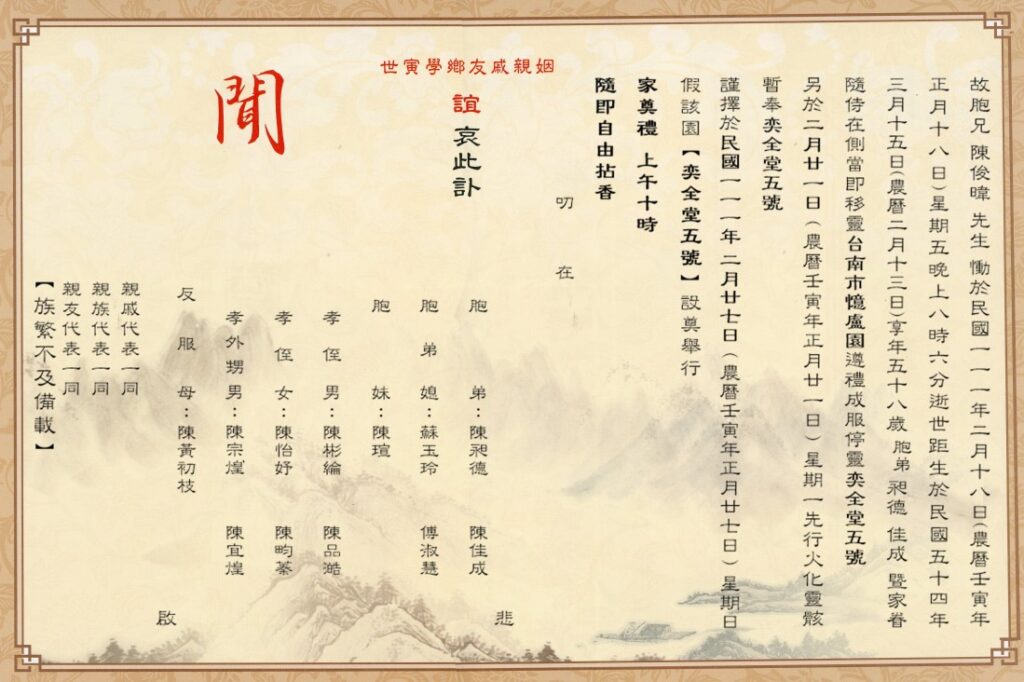 故胞兄 陳俊暐 先生 慟於民國一一一年二月十八日(農曆壬寅年
正月十八日)星期五晚上八時六分逝世距生於民國五十四年
三月十五日(農曆二月十三日)享年五十八歲 胞弟 昶德 佳成 暨家眷
隨侍在側當即移靈台南市憶盧園遵禮成服停靈奕全堂五號
另於二月廿一日(農曆壬寅年正月廿一日)星期一先行火化靈骸
暫奉奕全堂五號
謹擇於民國一一一年二月廿七日(農曆壬寅年正月廿七日)星期日
假該園【奕全堂五號】設奠舉行
家奠禮 上午十時
隨即自由拈香
叨在
世寅學鄉友戚親姻
誼 哀此訃
聞
胞弟:陳昶德 陳佳成
胞弟媳:蘇玉玲 傅淑慧
胞妹:陳瑄
孝侄男:陳彬綸 陳品澔
孝侄女:陳怡妤 陳畇蓁
孝外甥男:陳宗煌 陳宜煌
反服母:陳黃初枝
悲
啟
親戚代表一同
親族代表一同
親友代表一同
【族繁不及備載】